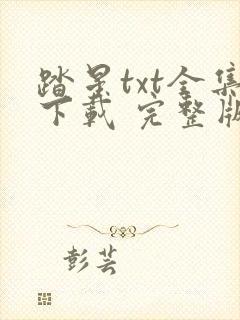 踏星txt全集
下载 完整版
彭芸